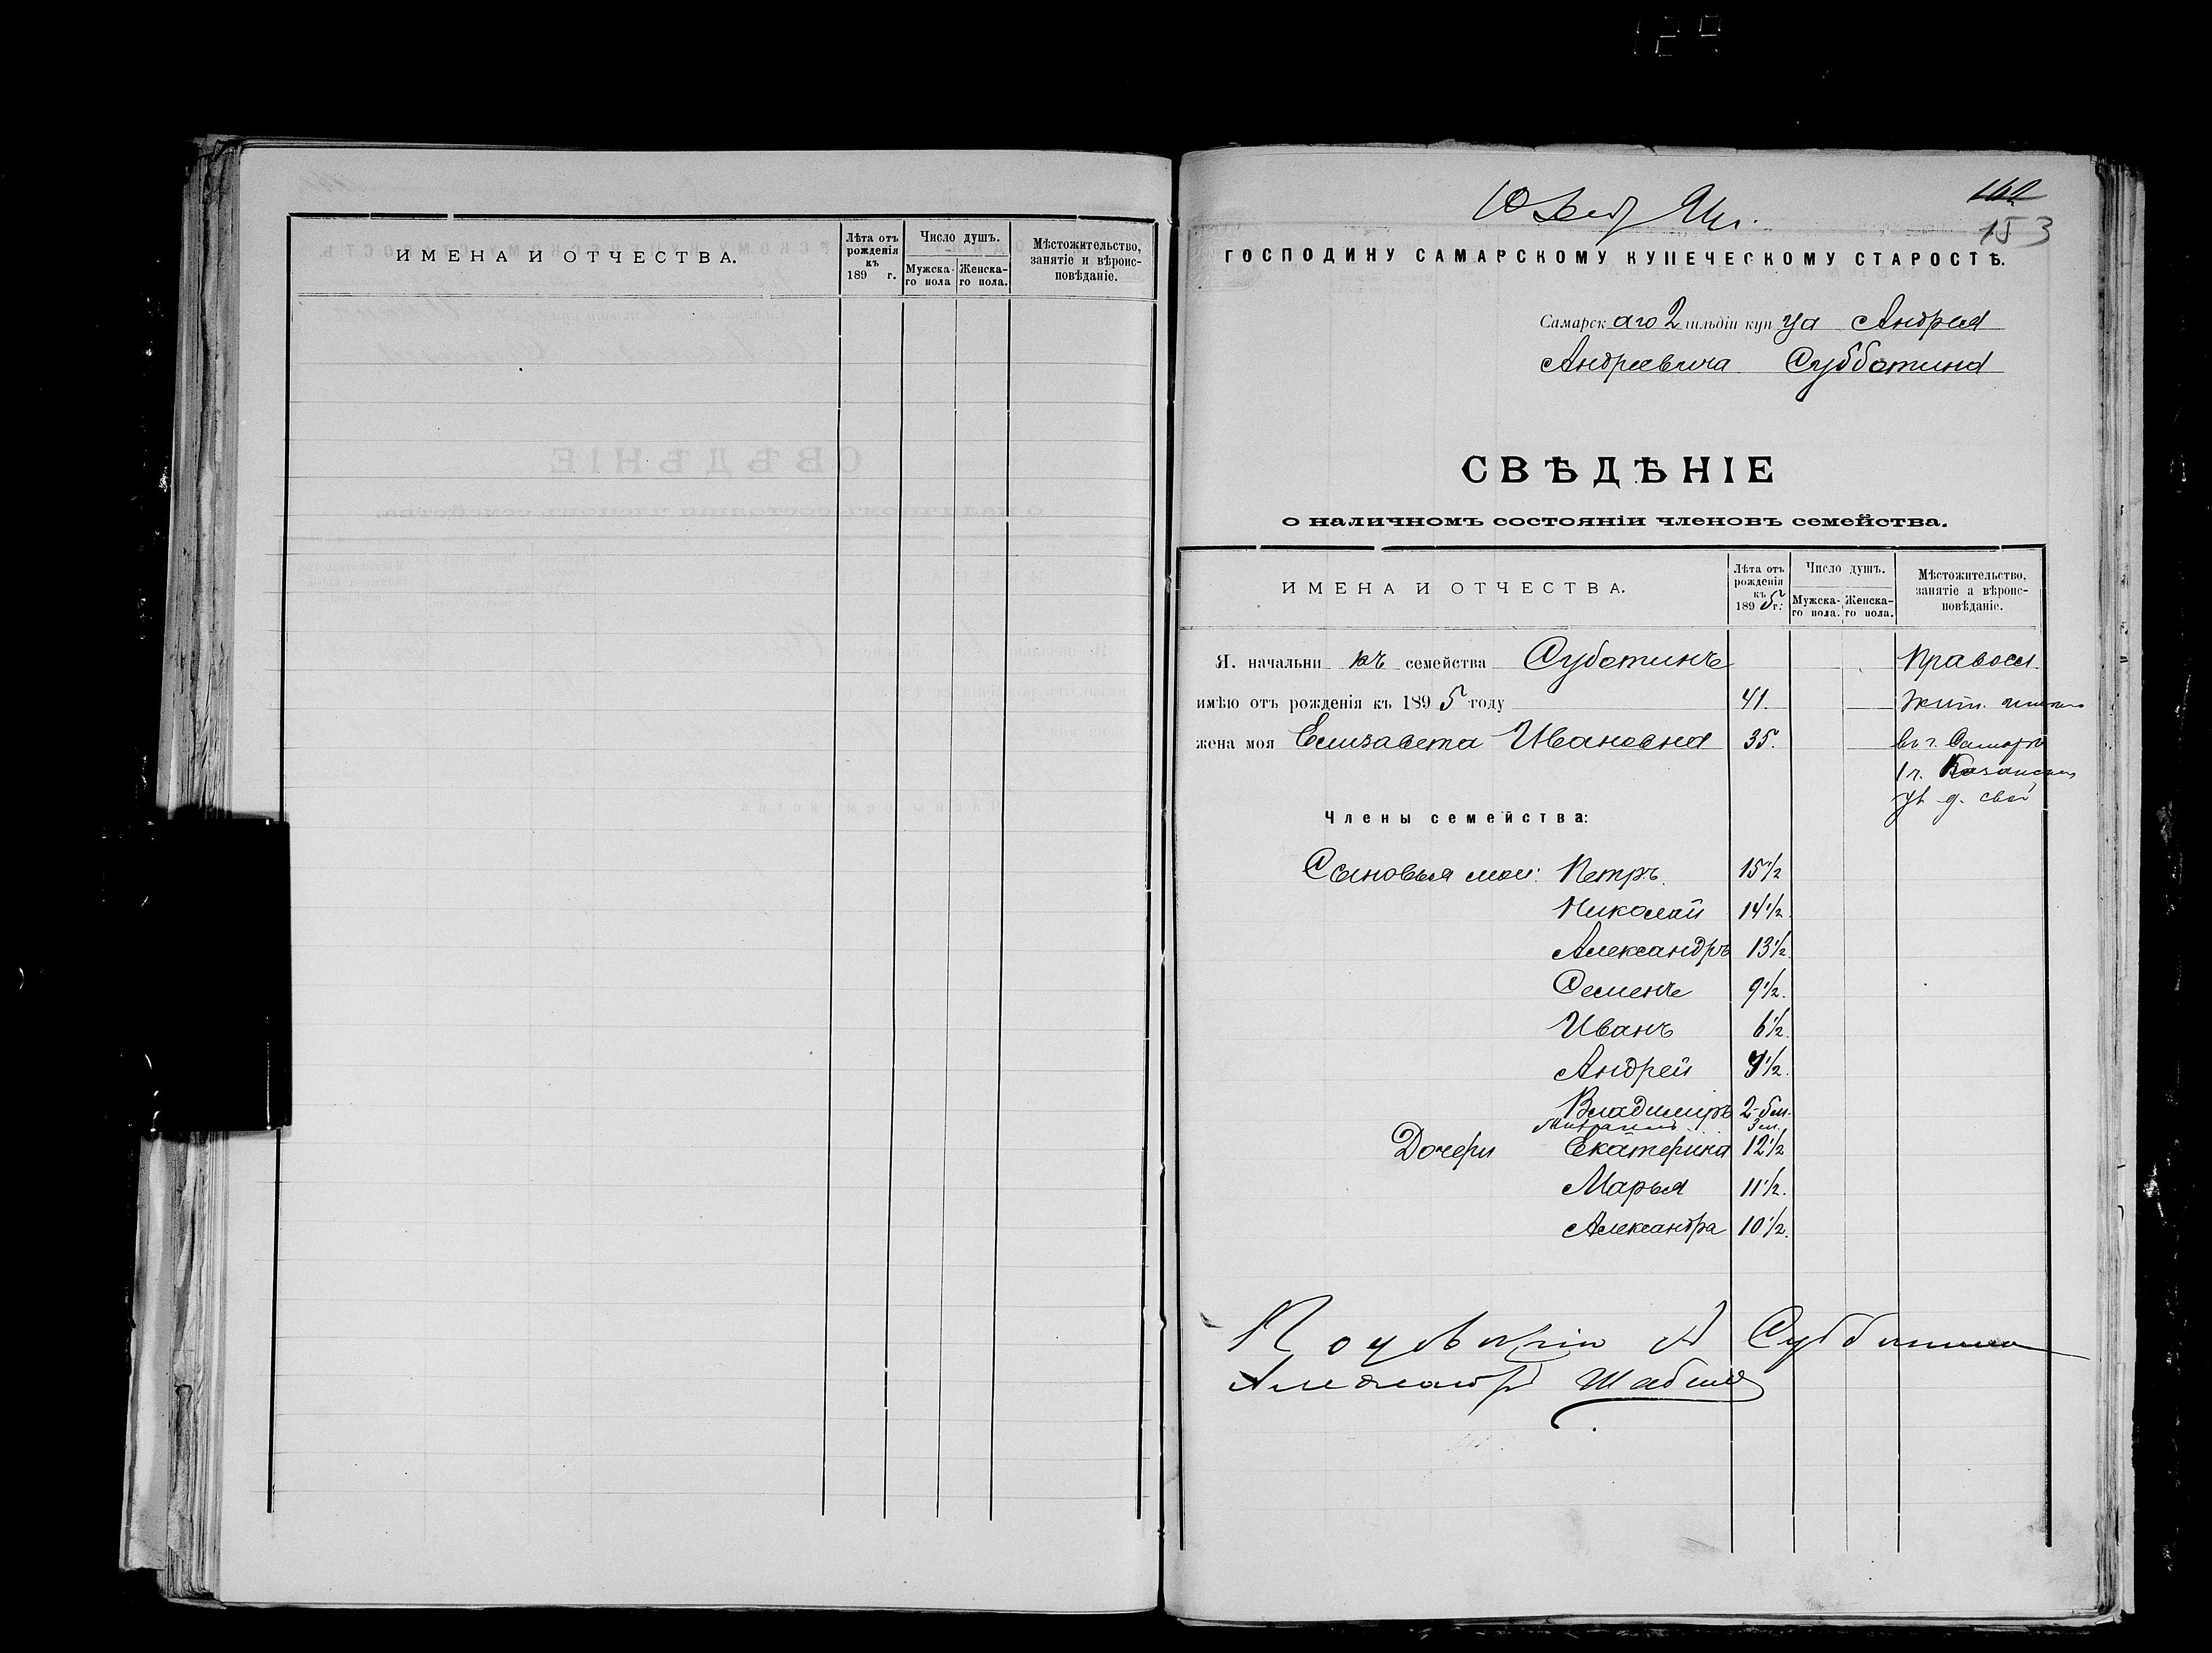 ИМЕНА И ОТЧЕСТВА.
Лѣта отъ рожденія къ 189 г.
Число душъ.
Мужска-го пола
Женска-го пола.
Мѣстожительство, занятіе и вѣроис-повѣданіе.
153
ГОСПОДИНУ САМАРСКОМУ КУПЕЧЕСКОМУ СТАРОСТѢ.
Самарск аго 2 гильдіи куп ца Андрея
Андреевича Субботина
СВѢДѢНІЕ
о наличномъ состояніи членовъ семейства.
ИМЕНА И ОТЧЕСТВА.
Лѣта отъ рожденія къ 1895 г.
Число душъ.
Мужска-го пола.
Женска-го пола.
Мѣстожительство, занятіе а вѣроис-повѣданіе.
Я. начальни къ семейства Суботинъ Правосл.
имѣю отъ рожденія къ 1895 году 41. Жит.
жена моя Елизавета Ивановна 35. въ г. Самарѣ
1 ч. Казанская
ул д. свой
Члены семейства:
Сыновья мои: Петръ. 15 1/2
Николай 14 1/2.
Александръ 13 1/2.
Семенъ 9 1/2.
Иванъ 6 1/2.
Андрей 4 1/2.
Владимиръ 2-6 м.
3 м.
Дочери Екатерина 12 1/2
Марья 11 1/2.
Александра 10 1/2.
А Субботина
Александръ